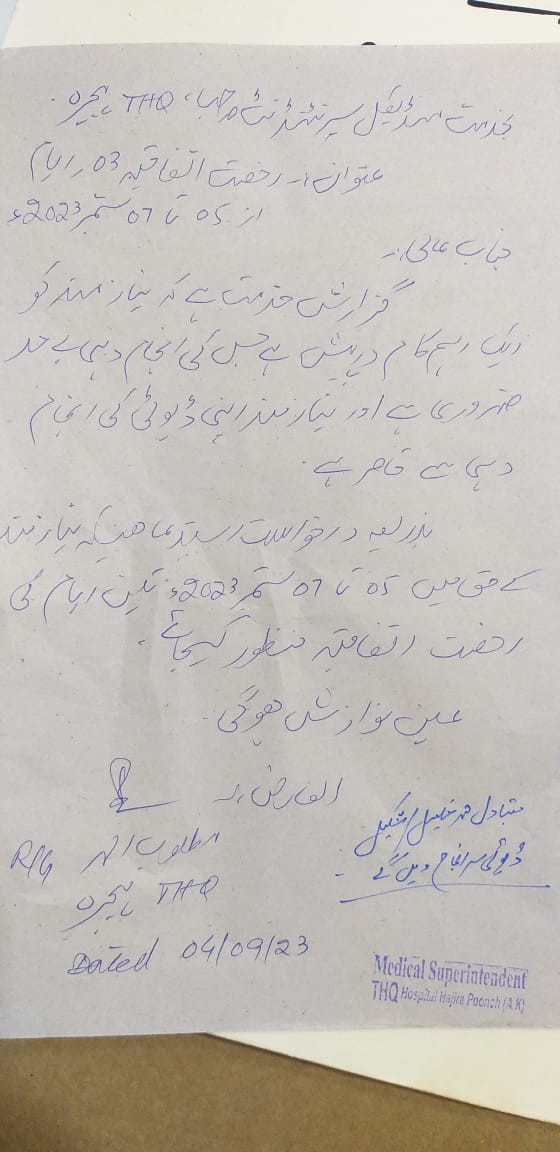 بخدمت میڈیکل سپرنٹنڈنٹ صاحب، THQ ہجیرہ۔
عنوان:۔ رخصت اتفاقیہ 03 ایام
از 05 تا 07 ستمبر 2023ء
جناب عالی:۔
گزارش خدمت ہے کہ نیاز مند کو
ایک اہم کام درپیش ہے جس کی انجام دہی بے حد
ضروری ہے اور نیاز مند اپنی ڈیوٹی کی انجام
دہی سے قاصر ہے۔
بذریعہ درخواست استدعا ہیکہ نیاز مند
کے حق میں 05 تا 07 ستمبر 2023ء تین ایام کی
رخصت اتفاقیہ منظور کیجائے۔
عین نوازش ہوگی۔
العارض:۔
مطلوب R/G
THQ ہجیرہ
Dated 04/09/23
متبادل محمد خلیل / شکیل
ڈیوٹی سر انجام دیں گے۔
Medical Superintendent
THQ Hospital Hajira Poonch (A.K)